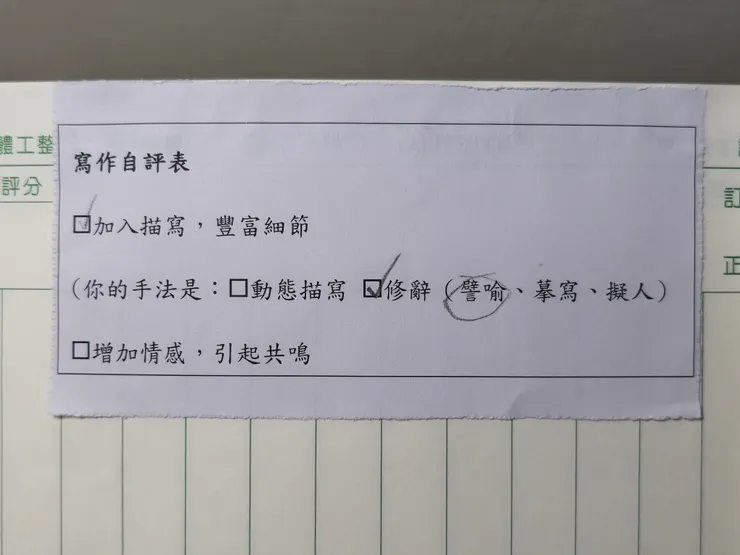 寫作自評表
☑加入描寫，豐富細節
（你的手法是：☐動態描寫 ☑修辭（譬喻、摹寫、擬人）
☐增加情感，引起共鳴
體工整
評分
訂
正